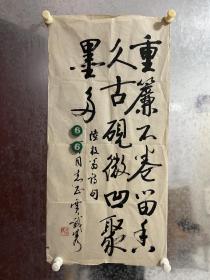 重簾不卷留香
久古硯微凹聚
墨多
陸放翁詩句
同志正